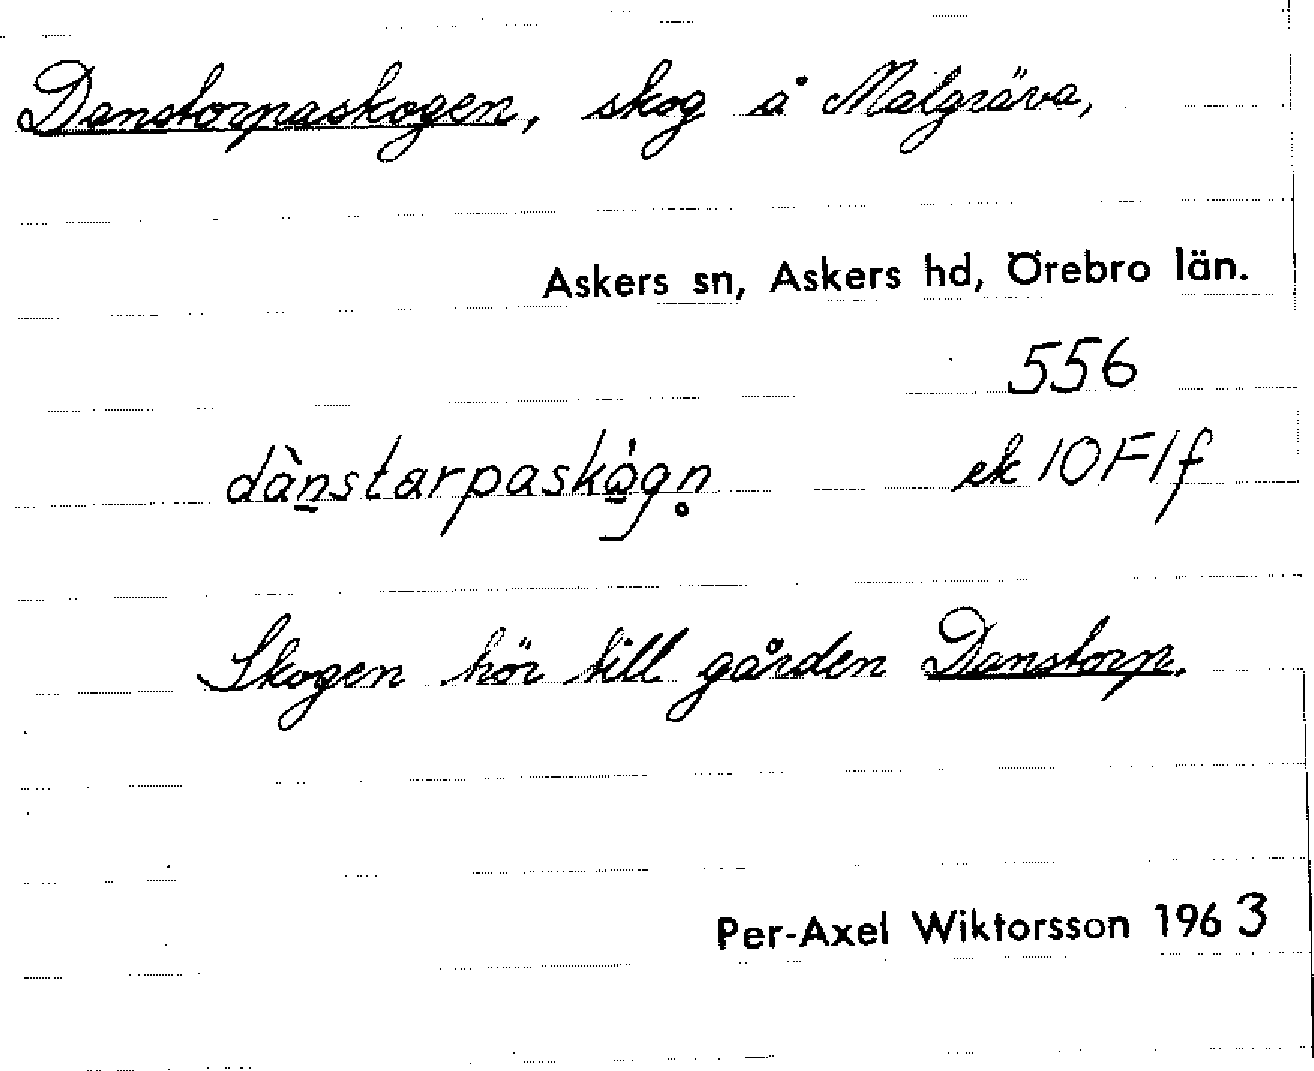 Danstorpaskogen, skog å Malgräva,
Askers sn, Askers hd, Örebro län.
556
dànstarpaskógn̥ ek 10F1f
Skogen hör till gården Danstorp.
Per-Axel Wiktorsson 1963